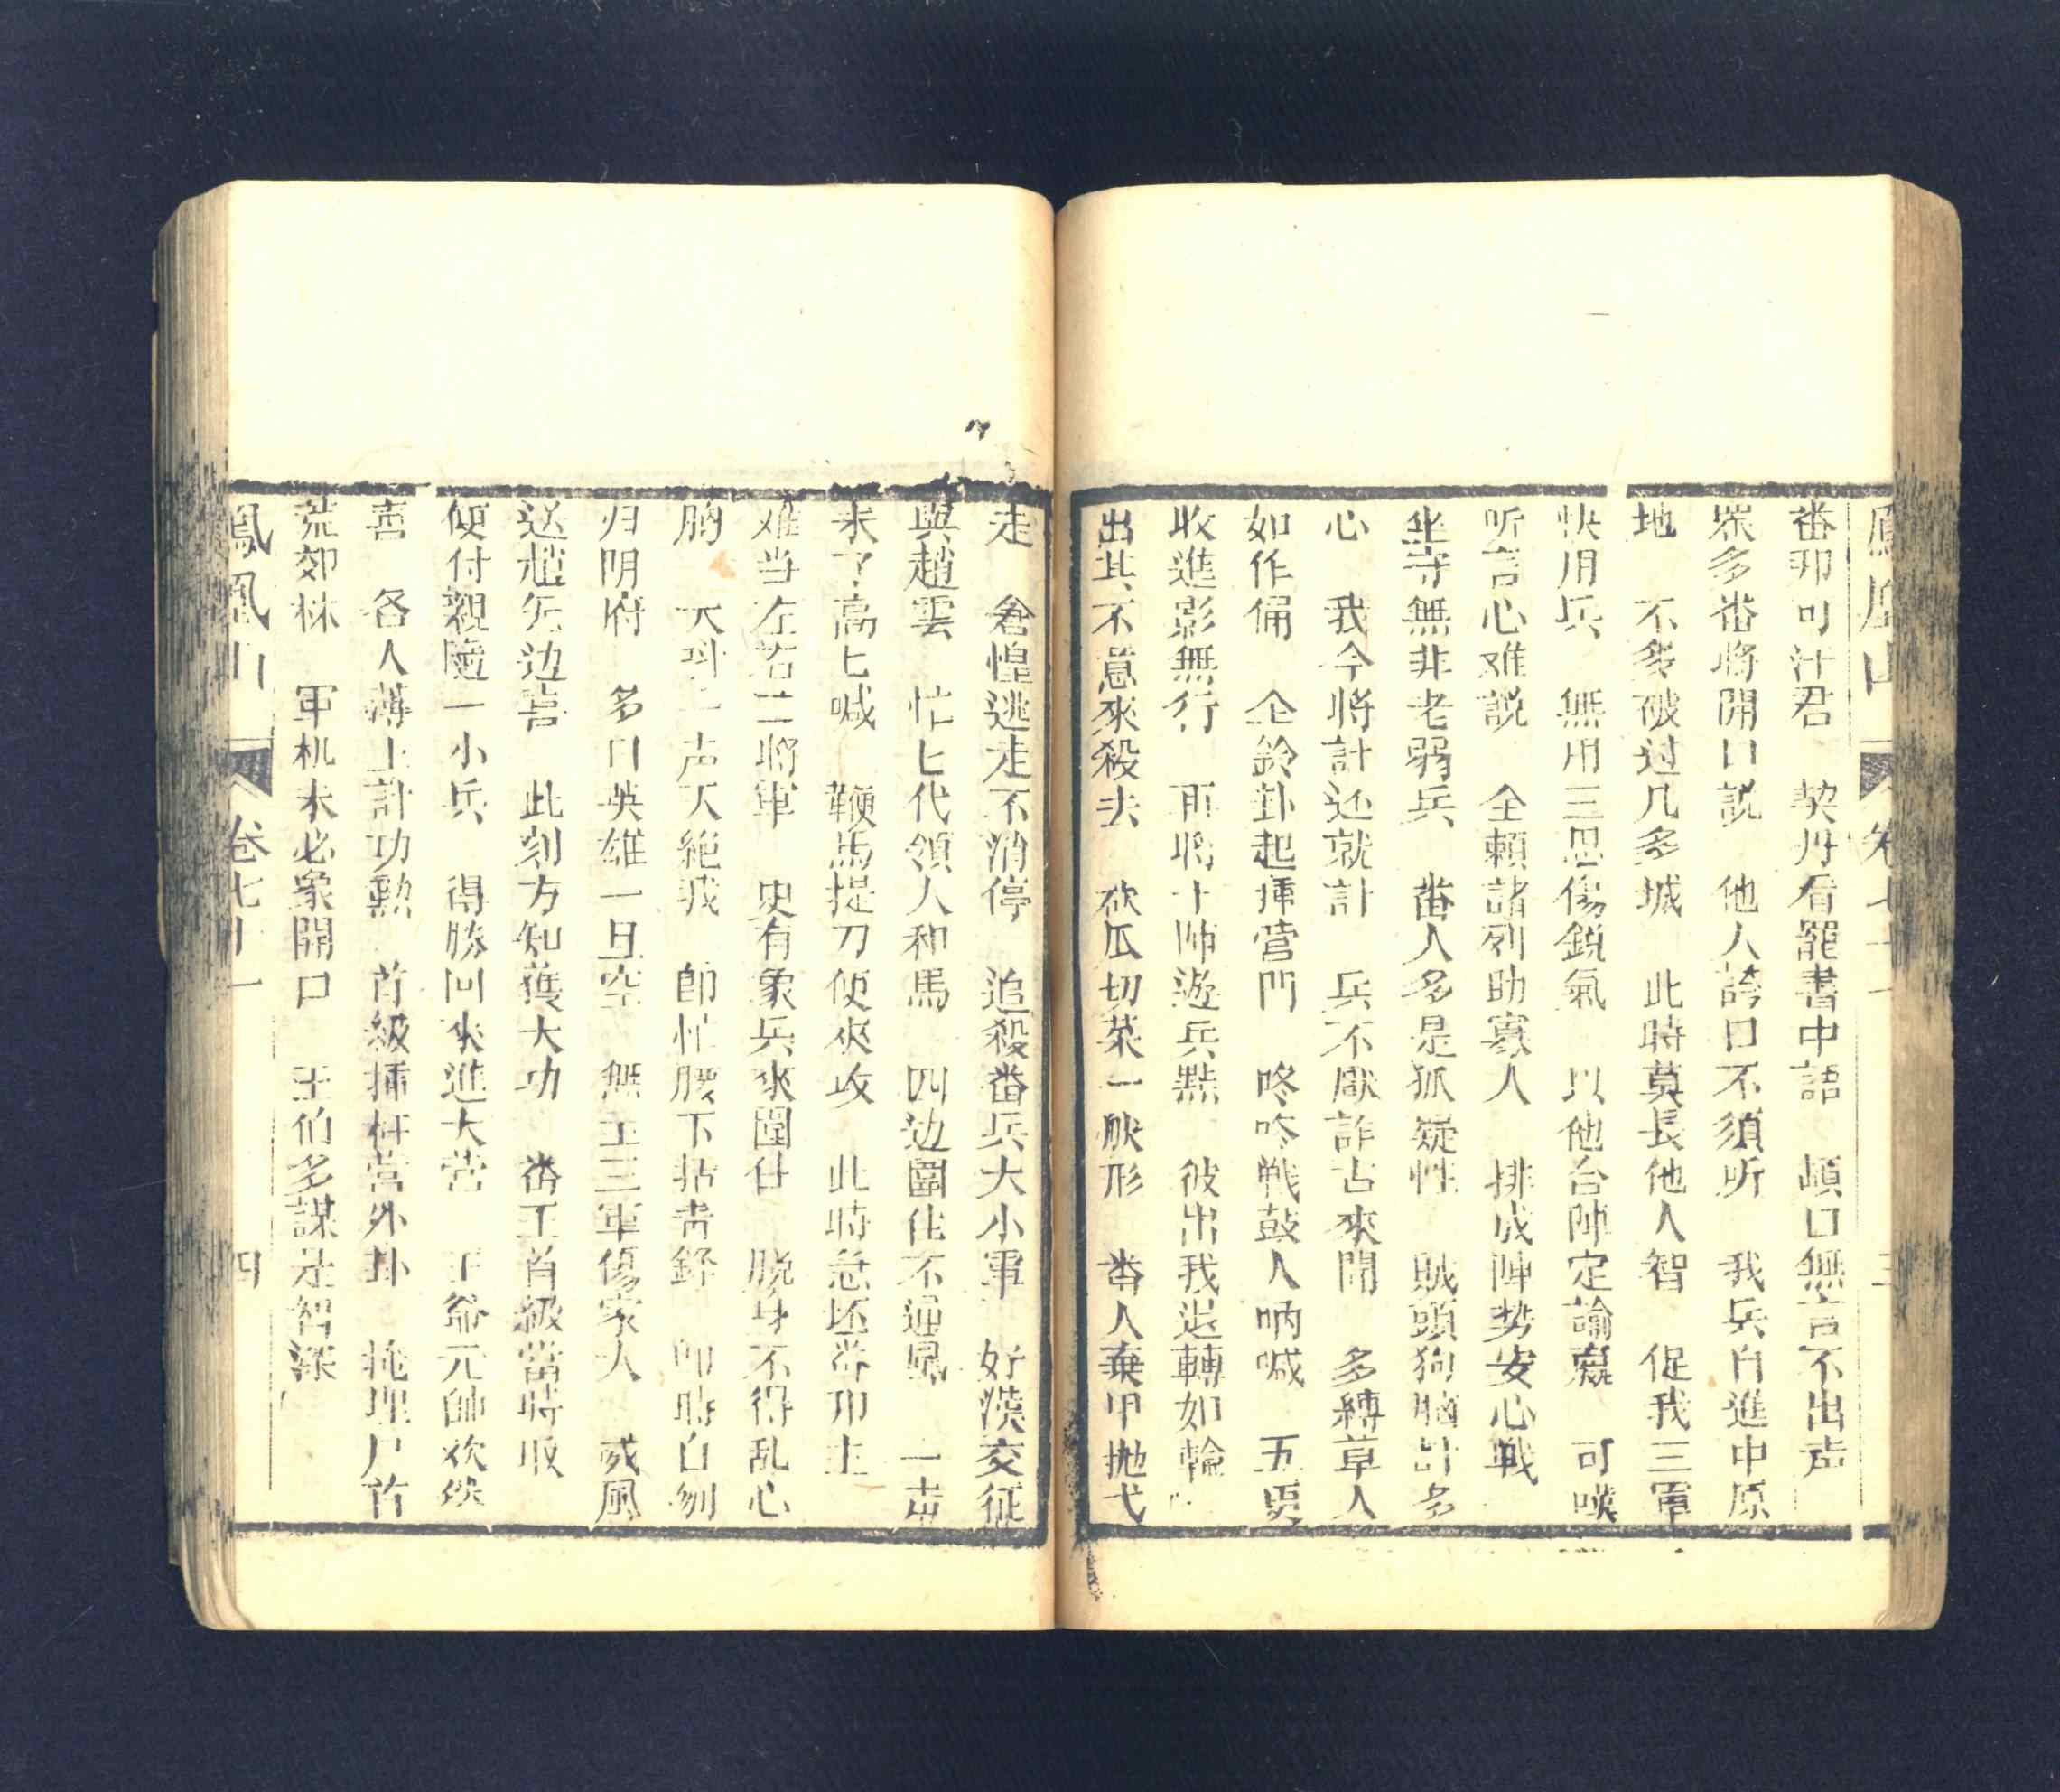 鳳凰山 卷七十一 三
番邦可汗君 契丹看罷書中語 頓口無言不出声
眾多番將開口説 他人誇口不須听 我兵自進中原
地 不多破过几多城 此時莫長他人智 促我三軍
快用兵 無用三思傷鋭氣 以他台陣定論嬴 可嘆
听言心难説 全賴諸列助寡人 排成陣势安心戰
坐守無非老弱兵 番人多是狐疑性 賊頭狗腦計多
心 我今將計还就計 兵不厭詐古來聞 多縛草人
如作俑 仝鈴卦起插营門 咚咚戦鼓人呐喊 五更
收進影無行 再將十帅遊兵點 彼出我退轉如輪
出其不意來殺去 砍瓜切菜一般形 番人棄甲抛弋
走 倉惶逃走不消停 追殺番兵大小軍 好漢交征
與趙雲 忙匕代領人和馬 四边圍住不通風 一声
未了高匕喊 鞭馬提刀便來攻 此時急坯番邦主
难当左右二將軍 史有象兵來圍住 脱身不得乱心
胸 大叫一声天絶我 即忙腰下拈青鋒 即時自刎
归阴府 多口英雄一旦空 無主三軍傷家人 威風
送趙旡边喜 此刻方知獲大功 番王首級當時取
便付親随一小兵 得勝回來進大营 王爺元帥欢然
喜 各人薄上計功勲 首級插杆营外卦 掩埋尸首
荒郊林 軍机未必象開口 王伯多謀是智深
鳳凰山 卷七十一 四